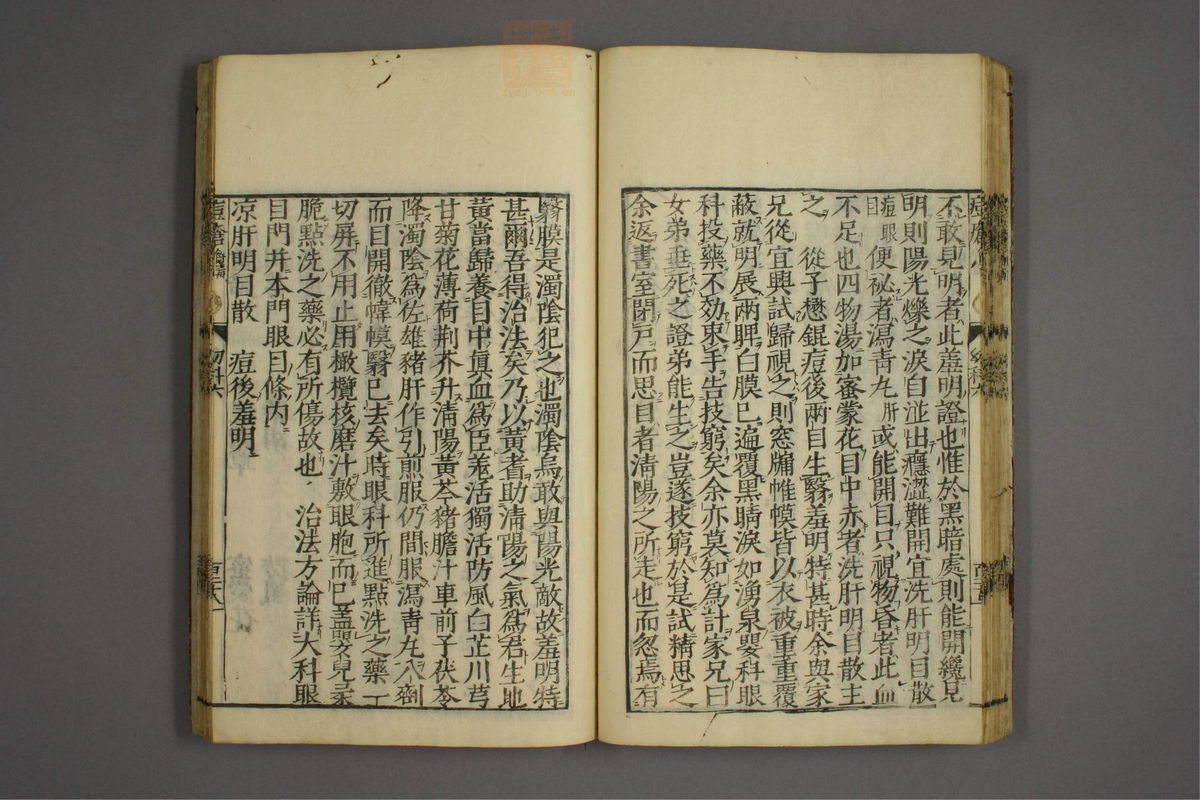 不敢見明者此羞明證也惟於黑暗處則能開纔見
明則陽光爍之淚自泣出癮澀難開宜洗肝明目散
痘眼目便祕者瀉靑丸肝或能開目只視物昏者此血
不足也四物湯加蜜蒙花目中赤者洗肝明目散主
之 從子懋錕痘後兩目生翳羞明特甚時余與家
兄從宜興試歸視之則窓牖帷幙皆以衣被重重覆
蔽就明展兩睥白膜已遍覆黑睛淚如湧泉嬰科眼
科投藥不効束手告技窮矣余亦莫知爲計家兄曰
女弟垂死之證弟能生之豈遂技窮於是試精思之
余返書室閉戸而思目者淸陽之所走也而忽焉有
翳膜是濁陰犯之也濁陰烏敢與陽光敵故羞明特
甚爾吾得治法矣乃以黃耆助淸陽之氣爲君生地
黃當歸養目中眞血爲臣羗活獨活防風白芷川芎
甘菊花薄荷荆芥升淸陽黃芩豬膽汁車前子茯苓
降濁陰爲佐雄豬肝作引煎服仍間服瀉靑丸八劑
而目開徹幃幙翳已去矣時眼科所進點洗之藥一
切屏不用止用橄欖核磨汁敷眼胞而已盖嬰兒柔
脆點洗之藥必有所傷故也 治法方論詳大科眼
目門幷本門眼目條內
凉肝明目散 痘後羞明
幼科六